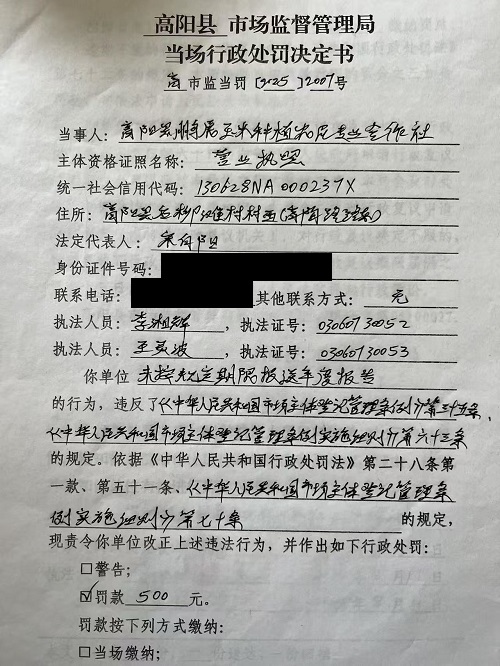 高阳县 市场监督管理局
当场行政处罚决定书
高 市监当罚〔2025〕2007号
当事人：高阳县鹏展玉米种植农民专业合作社
主体资格证照名称：营业执照
统一社会信用代码：130628NA000237X
住所：高阳县名柳 村村西(高 路路东)
法定代表人：向阳
身份证件号码：
联系电话： 其他联系方式：无
执法人员：李湘辉，执法证号：03060730052
执法人员：王英波，执法证号：03060730053
你单位 未按规定期限报送年度报告
的行为，违反了《中华人民共和国市场主体登记管理条例》第三十五条、
《中华人民共和国市场主体登记管理条例实施细则》第六十三条
的规定。依据《中华人民共和国行政处罚法》第二十八条第
一款、第五十一条、《中华人民共和国市场主体登记管理条
例实施细则》第七十条 的规定，
现责令你单位改正上述违法行为，并作出如下行政处罚：
□警告；
☑罚款 500 元。
罚款按下列方式缴纳：
□当场缴纳；